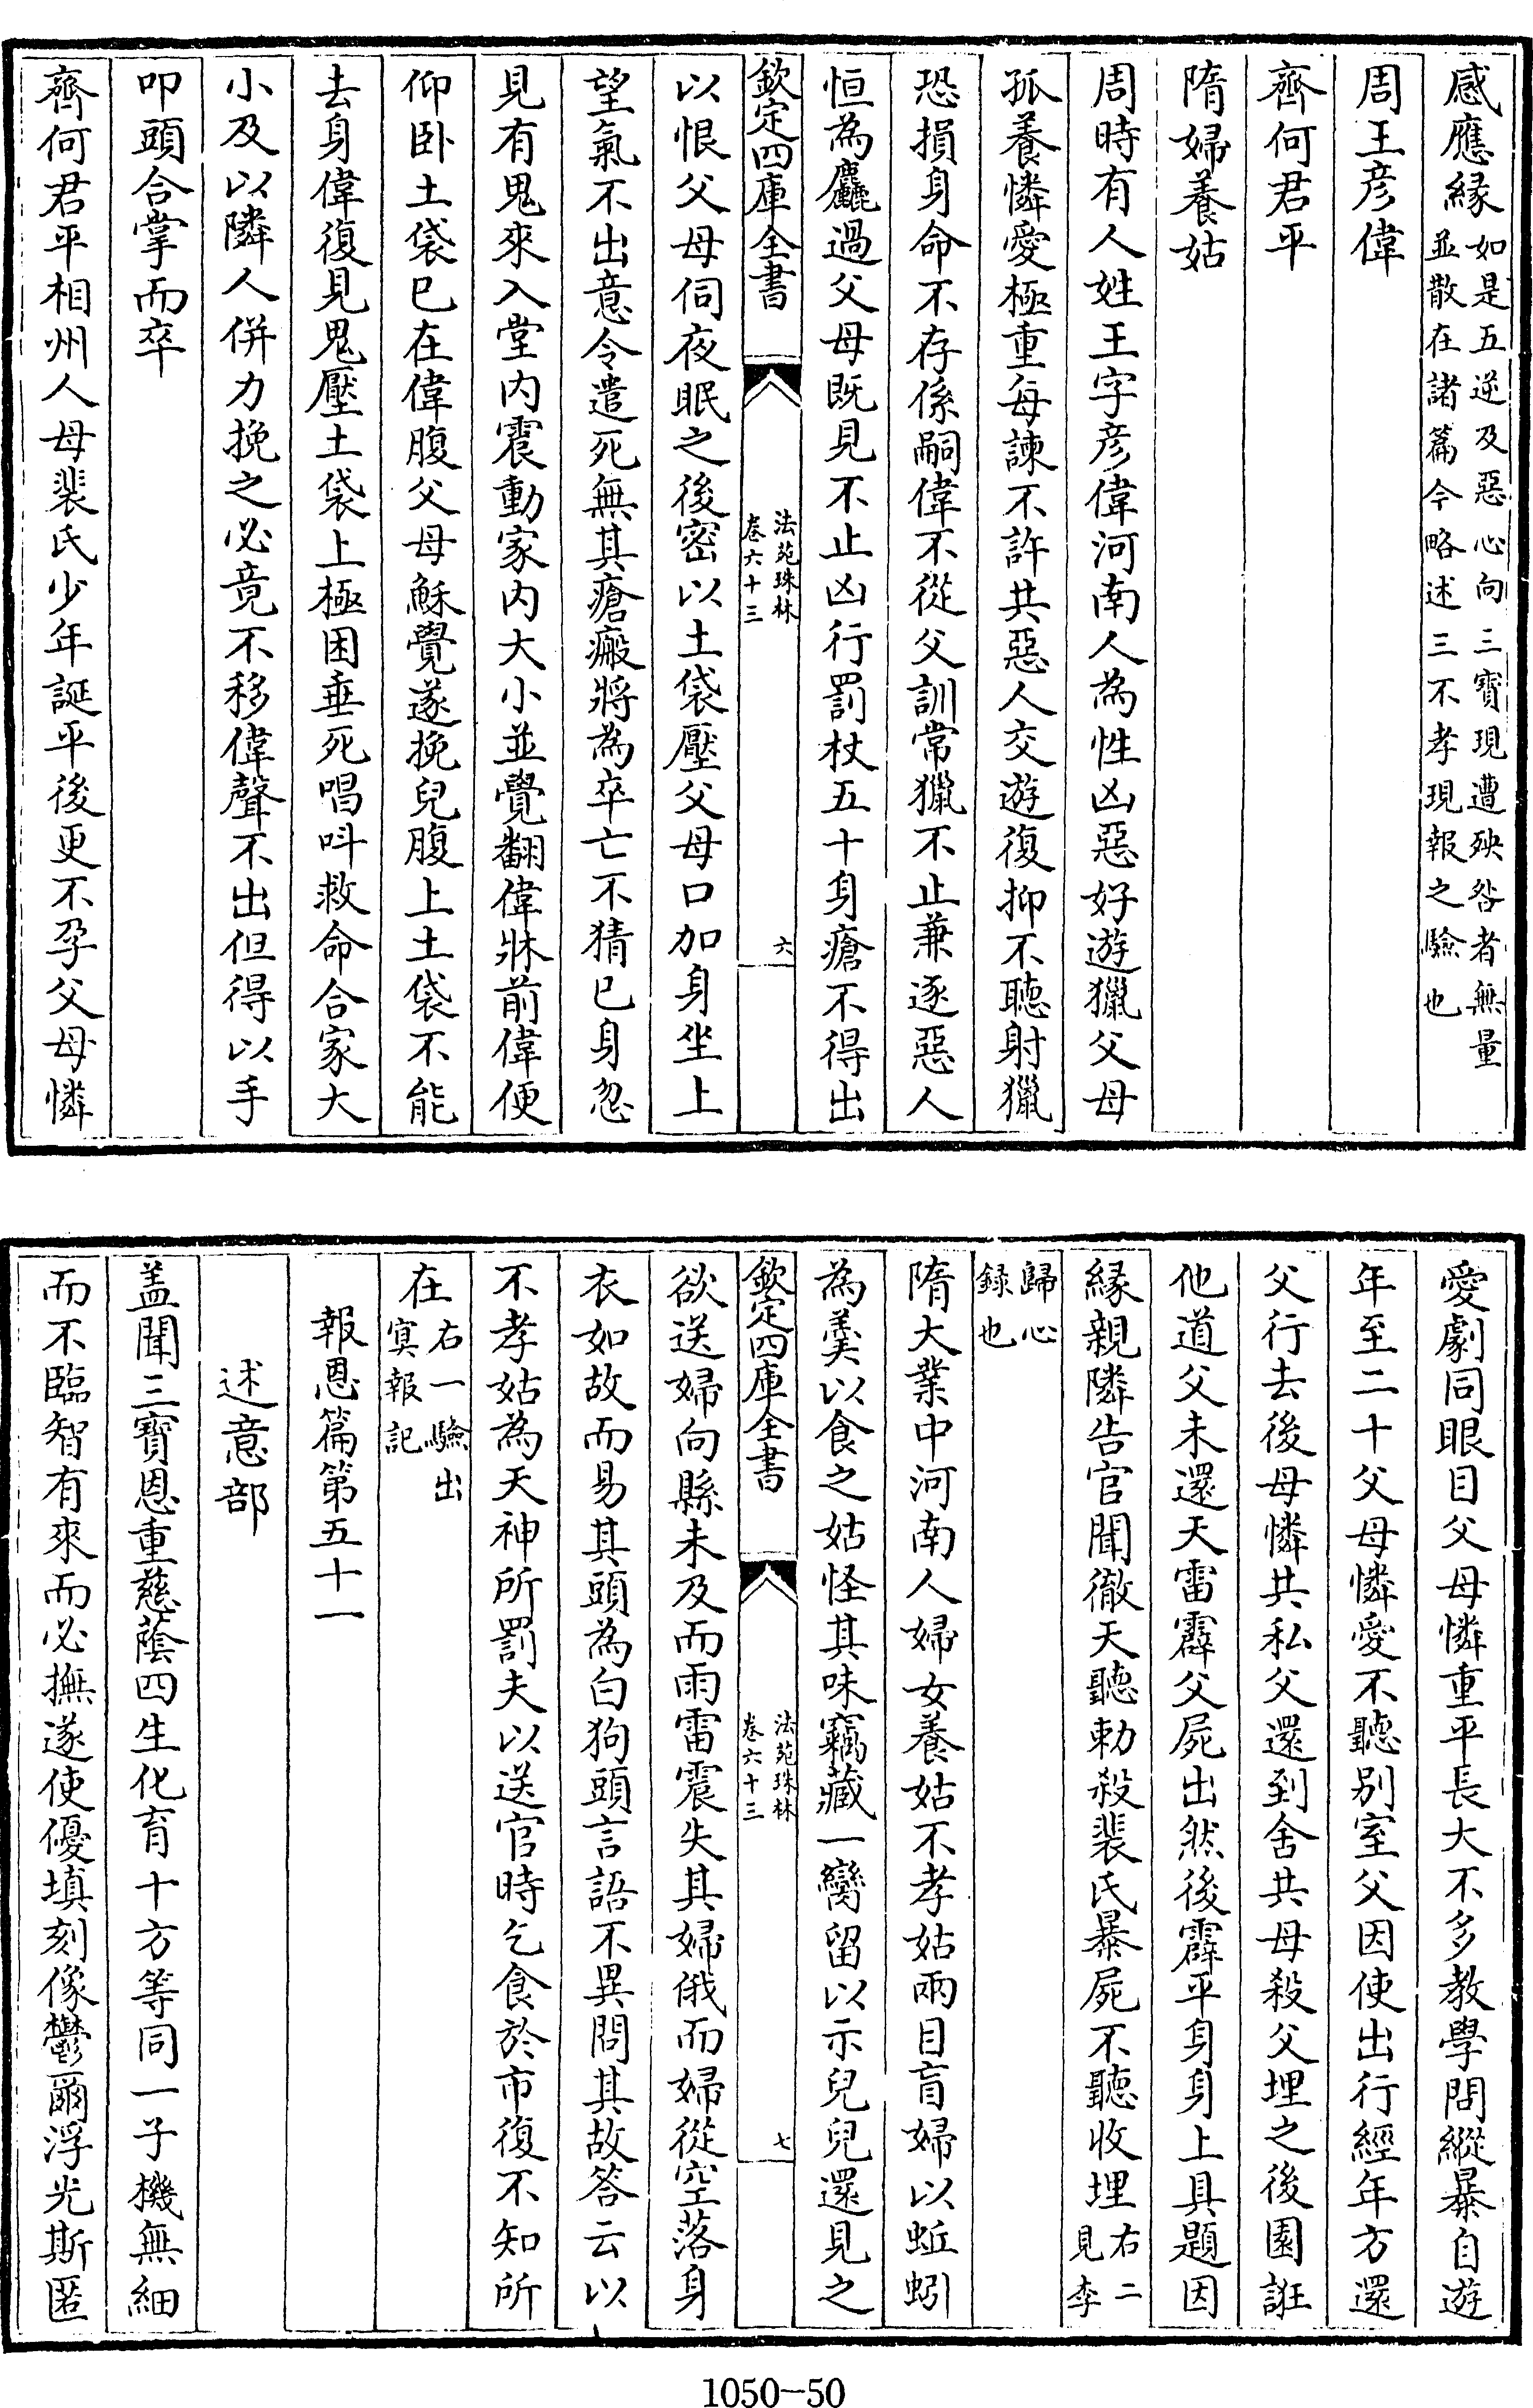 感應緣如是五逆及惡心向三寶現遭殃咎者無量
並散在諸篇今略述三不孝現報之驗也
周王彦偉
齊何君平
隋婦養姑
周時有人姓王字彦偉河南人為性凶惡好遊獵父母
孤養憐愛極重每諫不許共惡人交遊復抑不聽射獵
恐損身命不存係嗣偉不從父訓常獵不止兼逐惡人
恒為麤過父母既見不止凶行罰杖五十身瘡不得出
欽定四庫全書
法苑珠林
卷六十三
六
以恨父母伺夜眠之後密以土袋壓父母口加身坐上
望氣不出意令遣死無其瘡瘢將為卒亡不猜已身忽
見有鬼來入堂内震動家内大小並覺翻偉牀前偉便
仰卧土袋已在偉腹父母穌覺遂挽兒腹上土袋不能
去身偉復見鬼壓土袋上極困垂死唱呌救命合家大
小及以隣人併力挽之必竟不移偉聲不出但得以手
叩頭合掌而卒
齊何君平相州人母裴氏少年誕平後更不孕父母憐
愛劇同眼目父母憐重平長大不多教學問縱暴自遊
年至二十父母憐愛不聽别室父因使出行經年方還
父行去後母憐共私父還到舍共母殺父埋之後園誑
他道父未還天雷霹父屍出然後霹平身身上具題因
緣親隣告官聞徹天聽勅殺裴氏暴屍不聽收埋右二
見李
歸心
録也
隋大業中河南人婦女養姑不孝姑兩目盲婦以蚯蚓
為羹以食之姑怪其味竊藏一臠留以示兒兒還見之
欽定四庫全書
法苑珠林
卷六十三
七
欲送婦向縣未及而雨雷震失其婦俄而婦從空落身
衣如故而易其頭為白狗頭言語不異問其故答云以
不孝姑為天神所罰夫以送官時乞食於市復不知所
在右一驗出
㝠報記
報恩篇第五十一
述意部
盖聞三寶恩重慈蔭四生化育十方等同一子機無細
而不臨智有來而必撫遂使優填刻像鬱爾浮光斯匿
1050—50